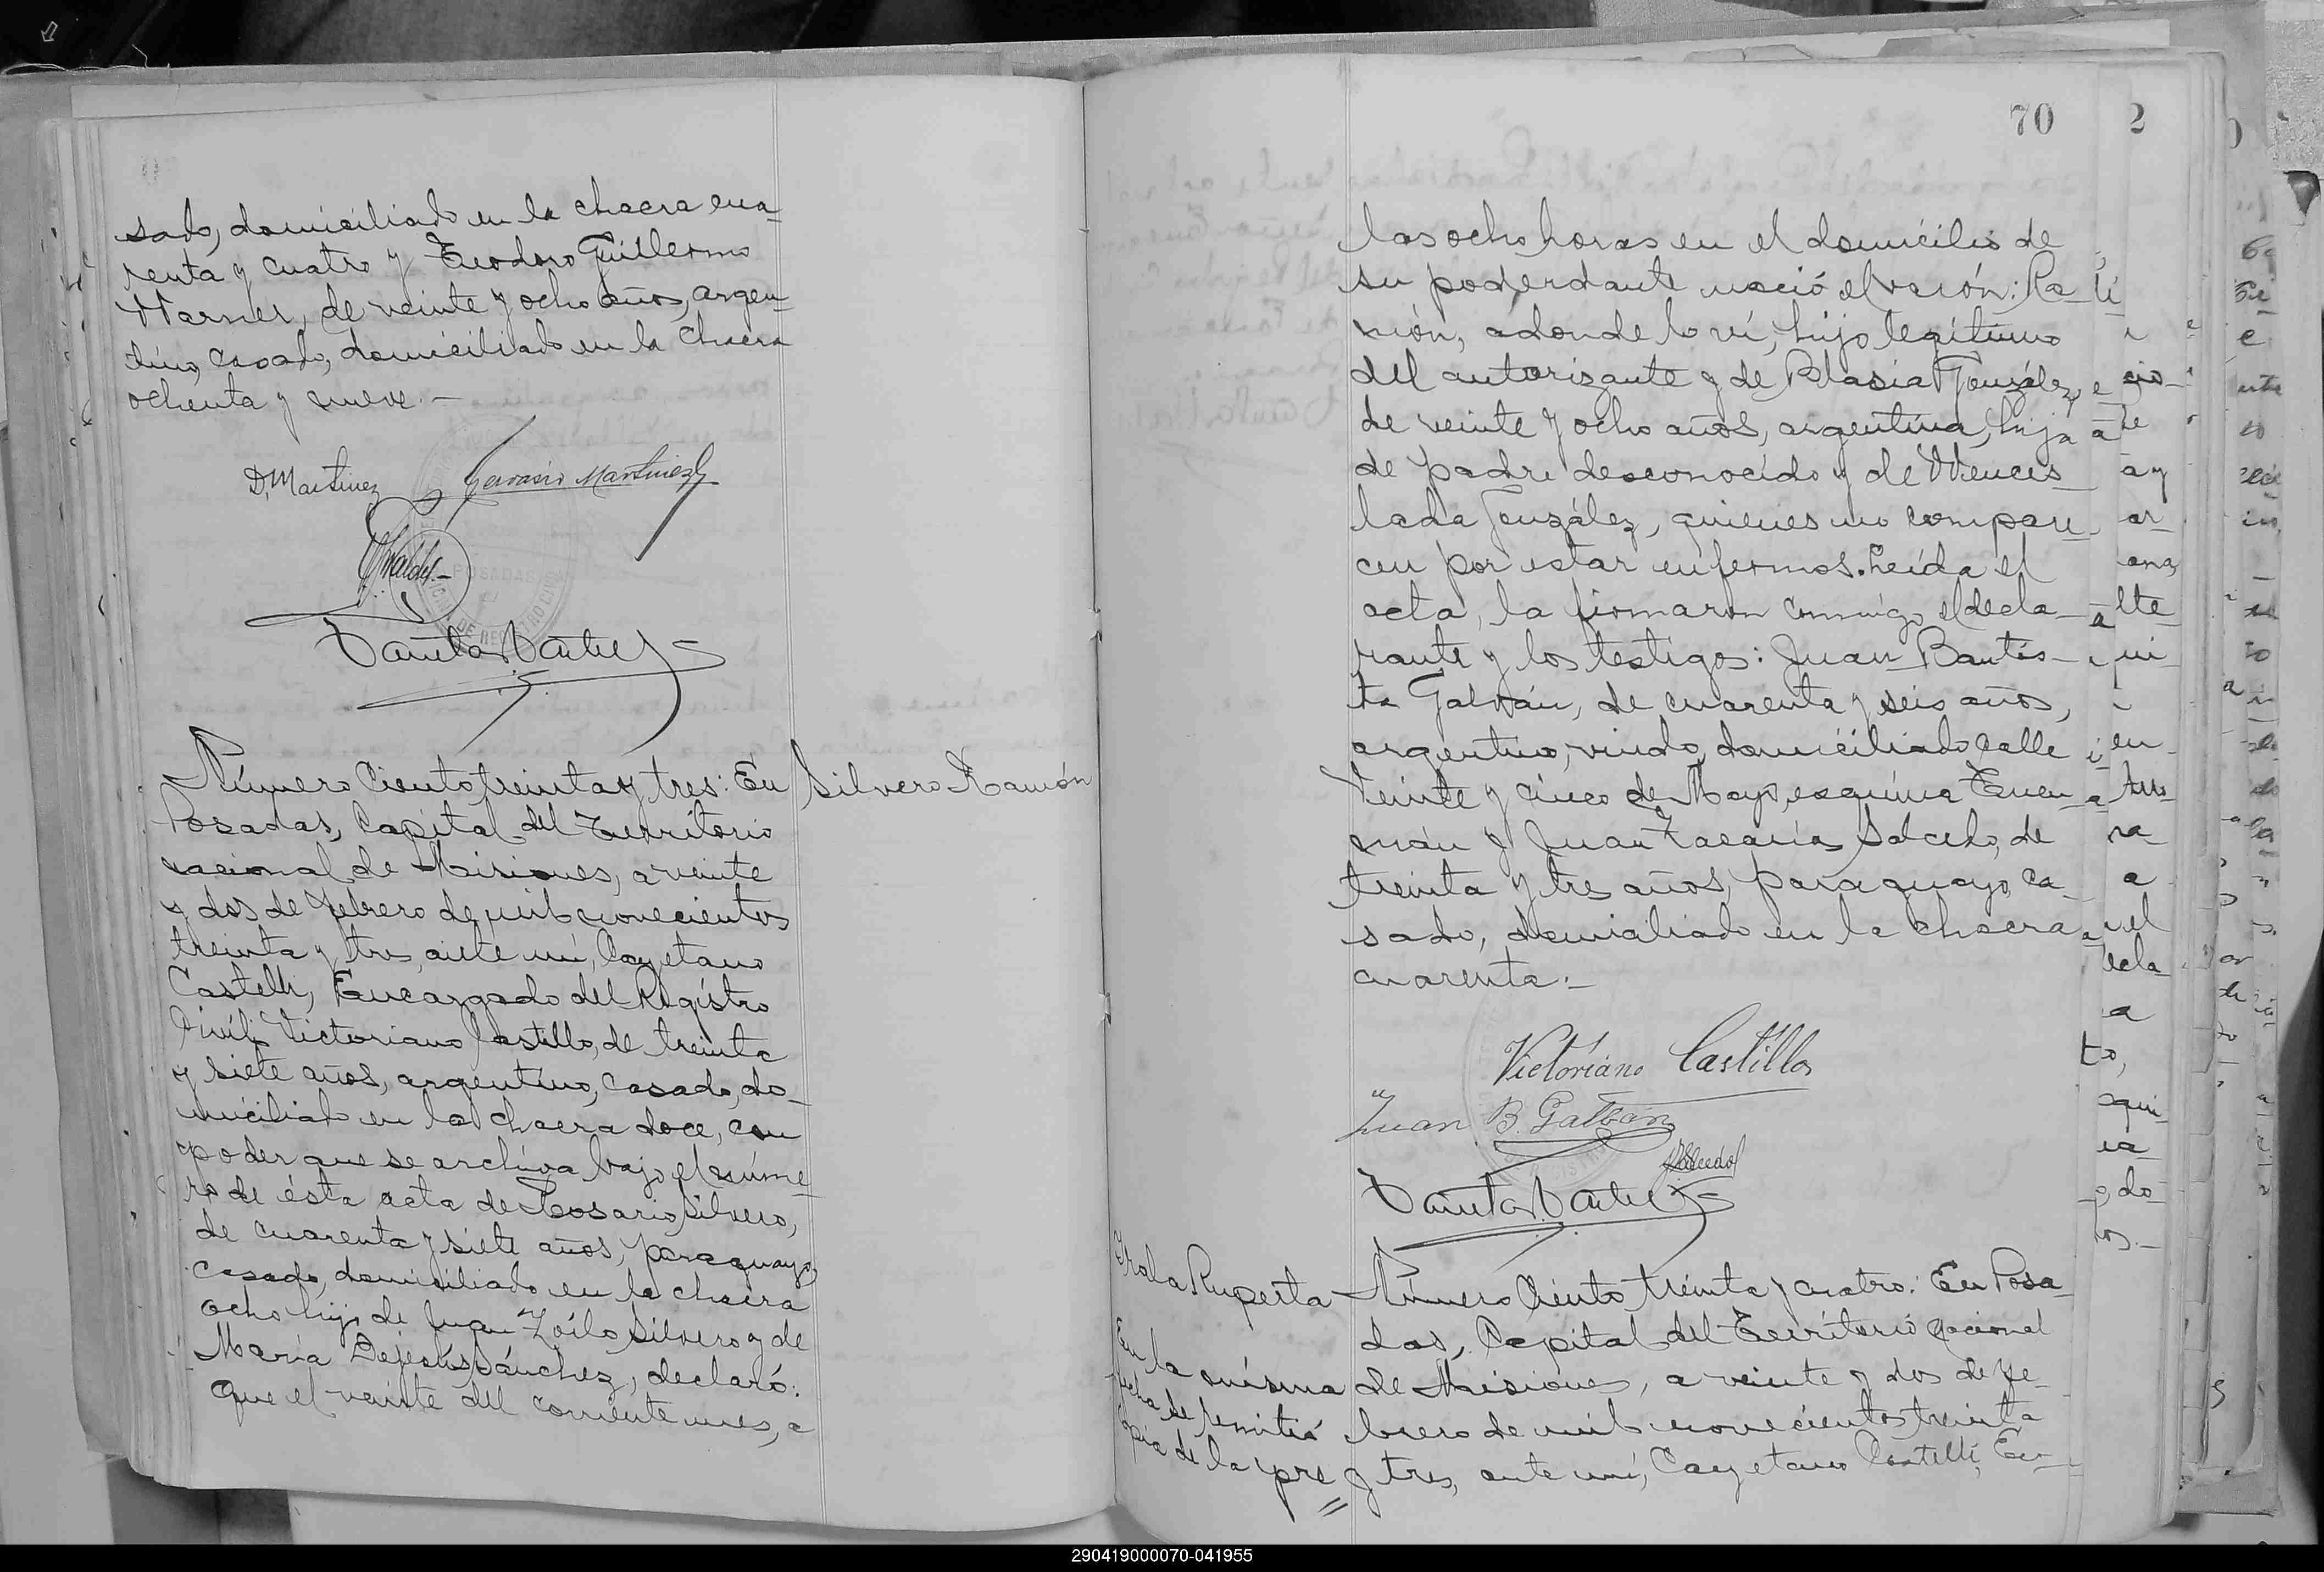 sado, domiciliado en la chacra cua-
renta y cuatro y Teodoro Guillermo
Warner, de veinte y ocho años, argen-
tino, casado, domiciliado en la chacra
ochenta y nueve.-
D. Martinez
Gervasio Martinez
POSADAS
Número Ciento treinta y tres: En
Posadas, Capital del Territorio
nacional de Misiones, a veinte
y dos de Febrero de mil novecientos
treinta y tres, ante mí, Cayetano
Castelli, Encargado del Registro
Civil, Victoriano Castillo, de treinta
y siete años, argentino, casado, do-
miciliado en la chacra doce, con
poder que se archiva bajo el núme-
ro de ésta acta de Rosario Silvero,
de cuarenta y siete años, paraguayo,
casado, domiciliado en la chacra
ocho hijo de Juan Zoilo Silvero y de
María Dejesús Sánchez, declaró:
Que el veinte del corriente mes, a
Silvero Ramón
70
las ocho horas en el domicilio de
su poderdante nació el varón: Ra-
món, adonde lo ví, hijo legítimo
del autorizante y de Blasia González,
de veinte y ocho años, argentina, hija
de padre desconocido y de Wences-
lada González, quienes no compare-
cen por estar enfermos. Leída el
acta, la firmaron conmigo, el decla-
rante y los testigos: Juan Bautis-
ta Galván, de cuarenta y seis años,
argentino, viudo, domiciliado calle
Veinte y cinco de Mayo, esquina Tucu-
mán y Juan Zacarías Salcedo, de
treinta y tres años, paraguayo, ca-
sado, domicialiado en la chacra
cuarenta.-
Victoriano Castillo
Juan B. Galván
JZSalcedo
Irala Ruperta
En la misma
fecha se remitió
copia de la pre
Número Ciento treinta y cuatro: En Posa-
das, Capital del Territorio Nacional
de Misiones, a veinte y dos de Fe-
brero de mil novecientos treinta
y tres, ante mí, Cayetano Castelli, En-
2
290419000070-041955